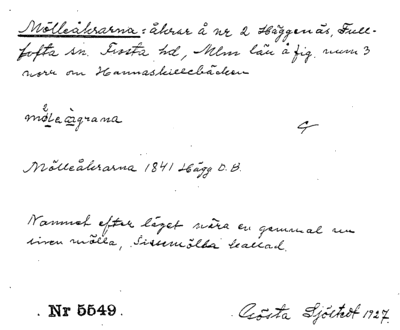 Mölleåkrarna = åkrar å nr 2 Häggenäs, Full-
tofta sn. Frosta hd, Mlm län å fig. num 3
norr om Hannaskillebäcken
mö̀leàgrana
Mölleåkrarna 1841 Hägg D.B.
Namnet efter läget nära en gammal nu
riven mölla, kallad.
Nr 5549.
Gösta Sjöstedt 1927.